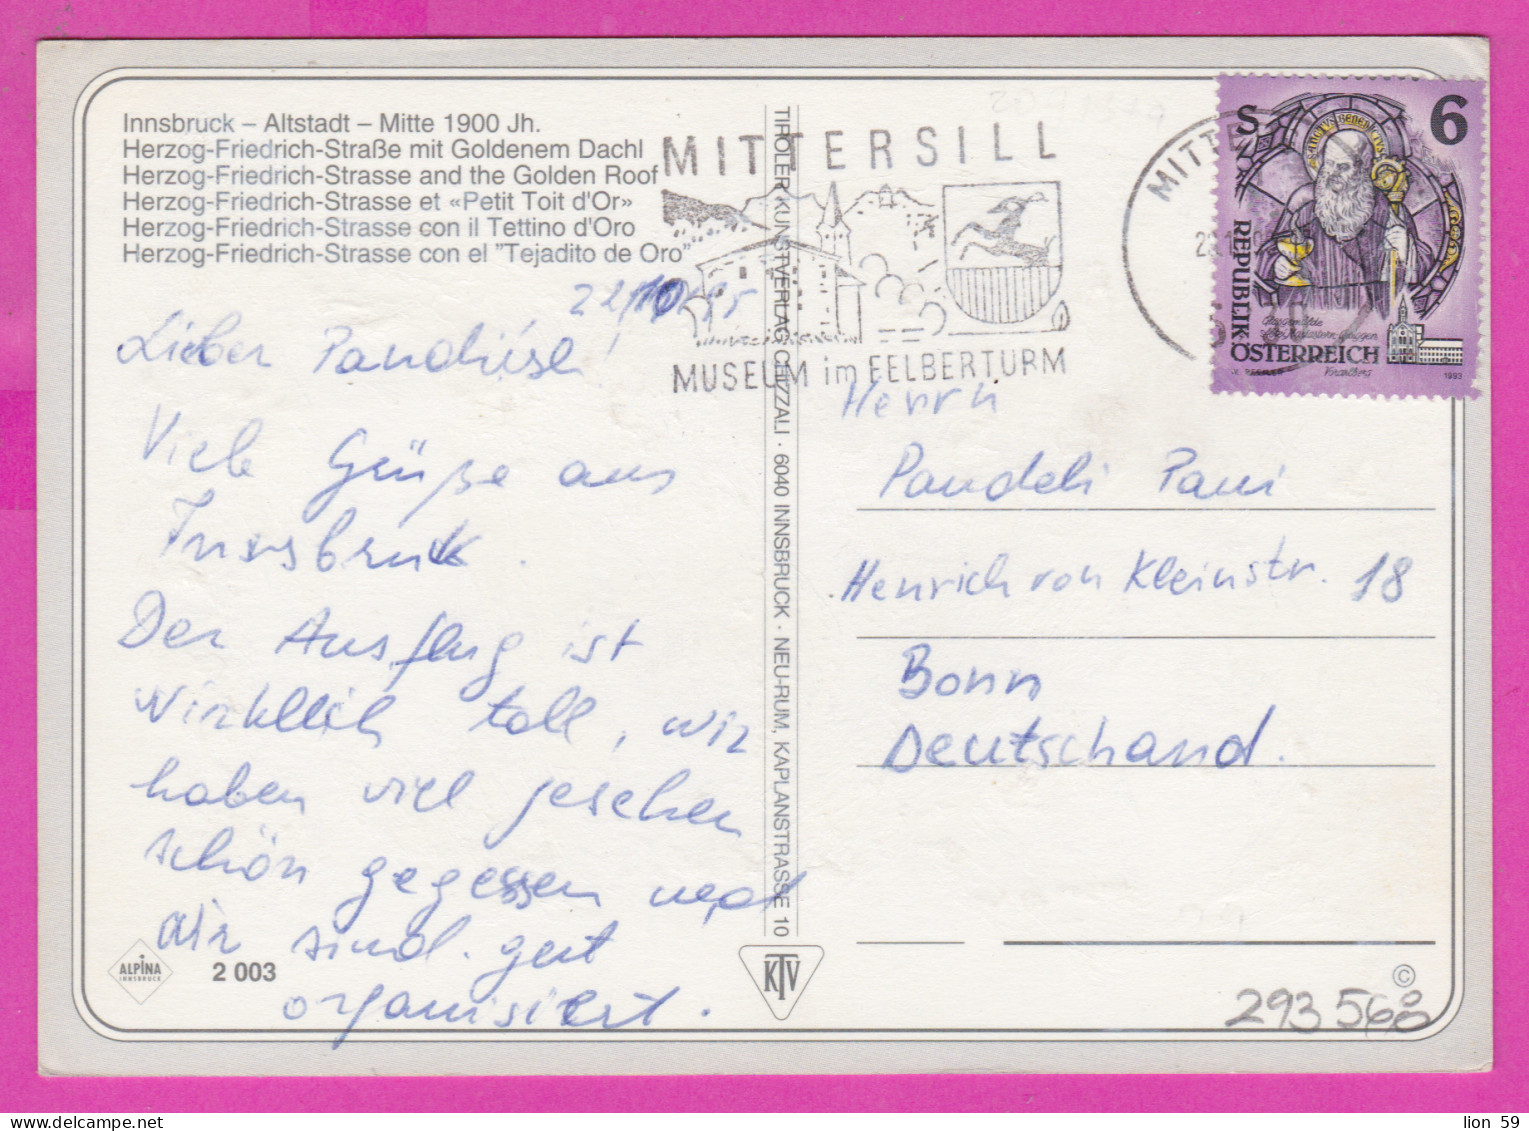 Innsbruck – Altstadt – Mitte 1900 Jh.
Herzog-Friedrich-Straße mit Goldenem Dachl
Herzog-Friedrich-Strasse and the Golden Roof
Herzog-Friedrich-Strasse et «Petit Toit d'Or»
Herzog-Friedrich-Strasse con il Tettino d'Oro
Herzog-Friedrich-Strasse con el "Tejadito de Oro"
Lieber
Viele Grüße aus
Innsbruck.
Der Ausflug ist
wirklich toll, wir
haben viel gesehen
schön gegessen und
wir sind gut
organisiert.
ALPINA
INNSBRUCK
2 003
TIROLER KUNSTVERLAG CHIZZALI · 6040 INNSBRUCK · NEU-RUM, KAPLANSTRASSE 10
KTV
MITTERSILL
MUSEUM im FELBERTURM
MITTE
S 6
SANCTVS BENEDICTVS
REPUBLIK
ÖSTERREICH
1993
Herrn
Pandeli Pani
Henrich von Kleinstr. 18
Bonn
Deutschand.
©
293 568
lion 59